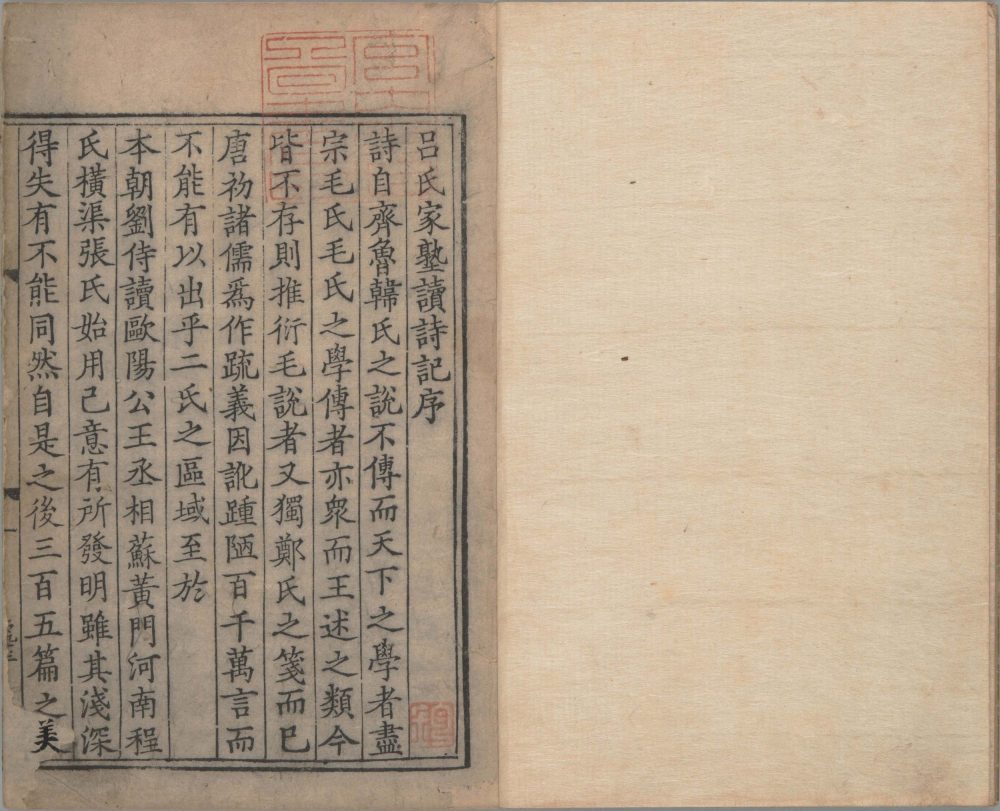 吕氏家塾讀詩記序
詩自齊魯韓氏之說不傳而天下之學者盡
宗毛氏毛氏之學傳者亦衆而王述之類今
皆不存則推衍毛說者又獨鄭氏之箋而已
唐初諸儒爲作疏義因訛踵陋百千萬言而
不能有以出乎二氏之區域至於
本朝劉侍讀歐陽公王丞相蘇黃門河南程
氏橫渠張氏始用己意有所發明雖其淺深
得失有不能同然自是之後三百五篇之美